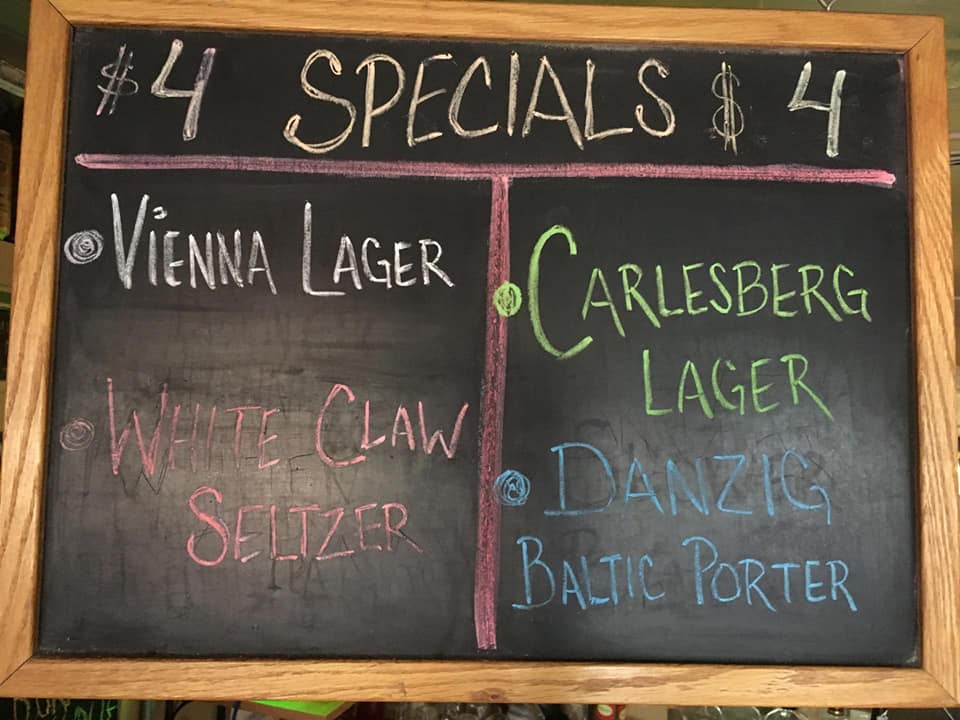 $4 SPECIALS $4
VIENNA LAGER
WHITE CLAW
SELTZER
CARLESBERG
LAGER
DANZIG
BALTIC PORTER